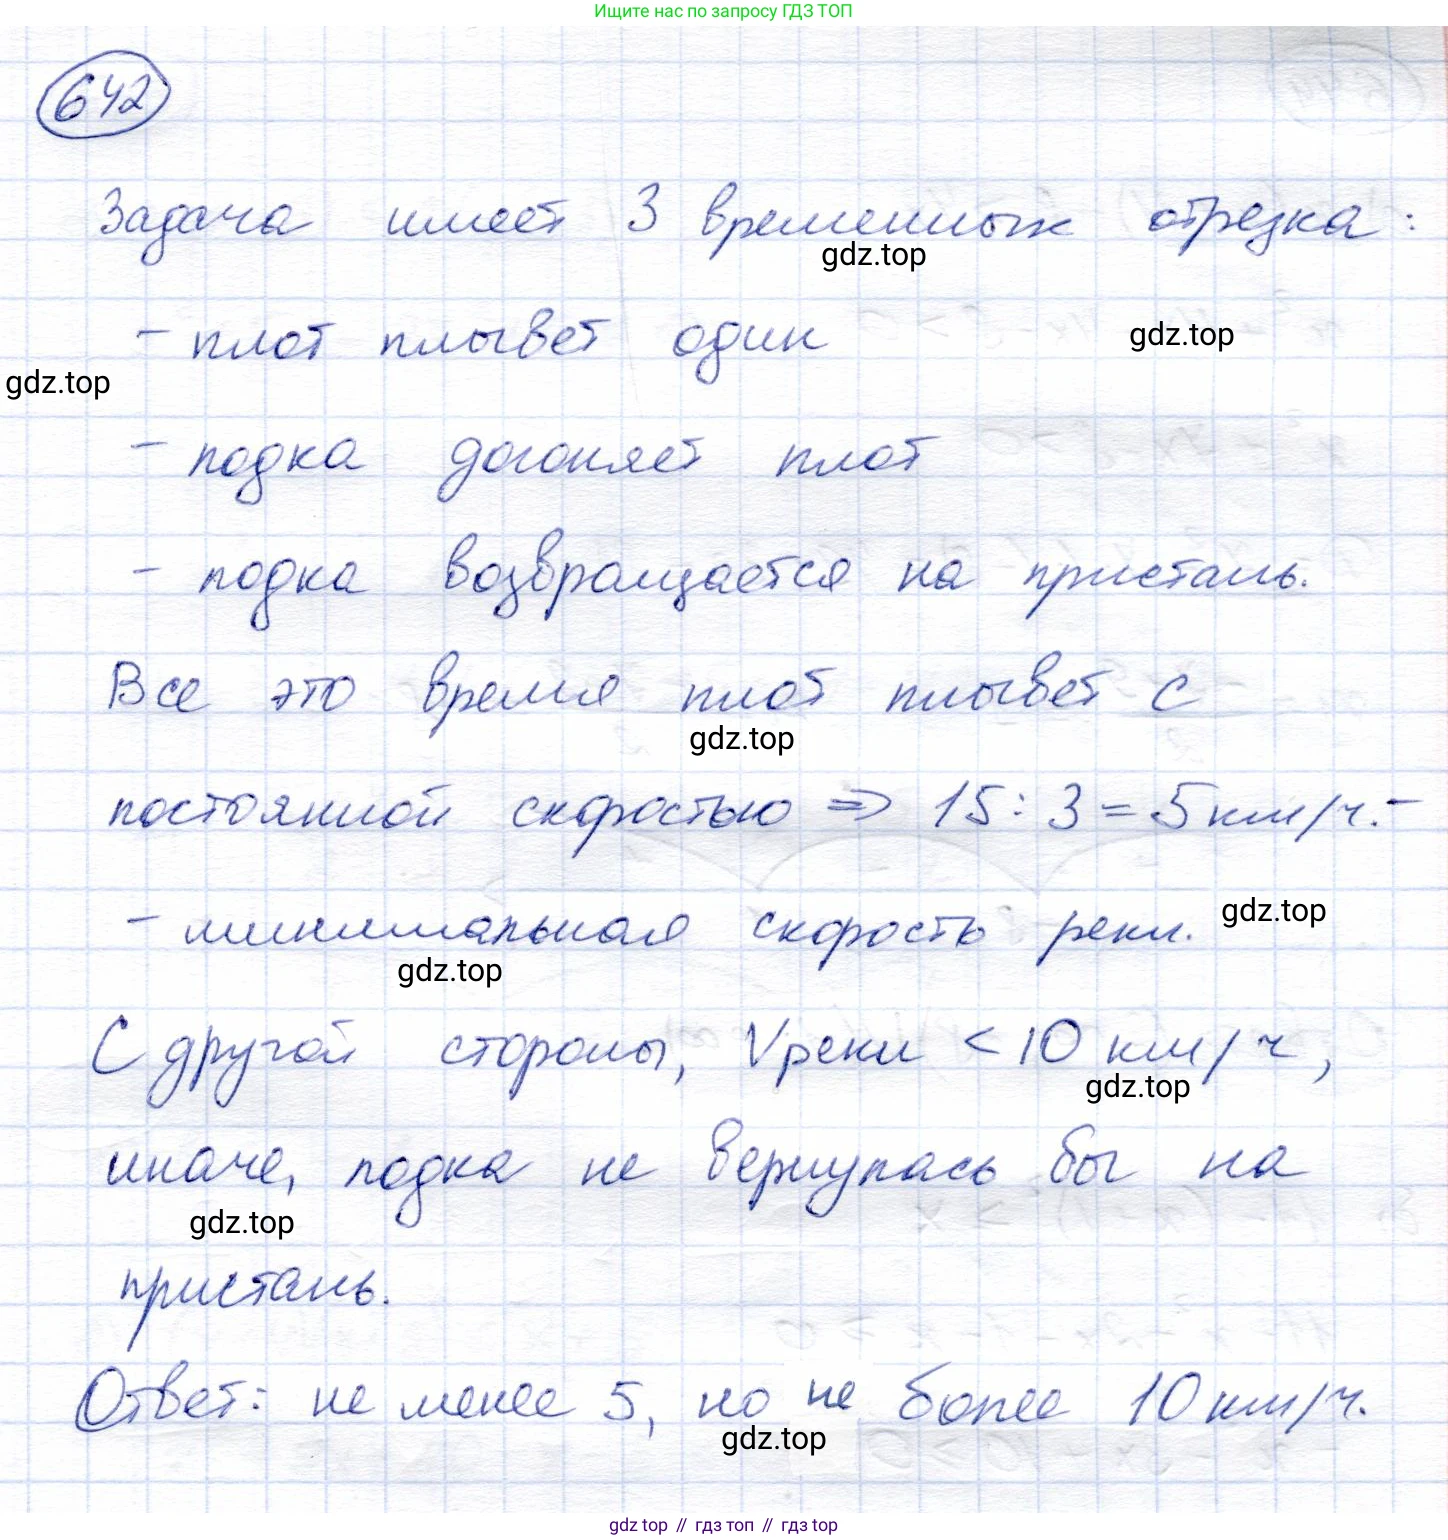 Ищите нас по запросу ГДЗ ТОП
642
Задача имеет 3 временных отрезка:
gdz.top
- плот плывет один
gdz.top
gdz.top
- лодка догоняет плот
- лодка возвращается на пристань.
Все это время плот плывет с
gdz.top
постоянной скоростью => 15:3=5км/ч.-
- минимальная скорость реки.
gdz.top
gdz.top
С другой стороны, Vреки < 10 км/ч,
gdz.top
иначе, лодка не вернулась бы на
gdz.top
пристань.
Ответ: не менее 5, но не более 10км/ч.
gdz.top
gdz top // гдз топ // гдз top